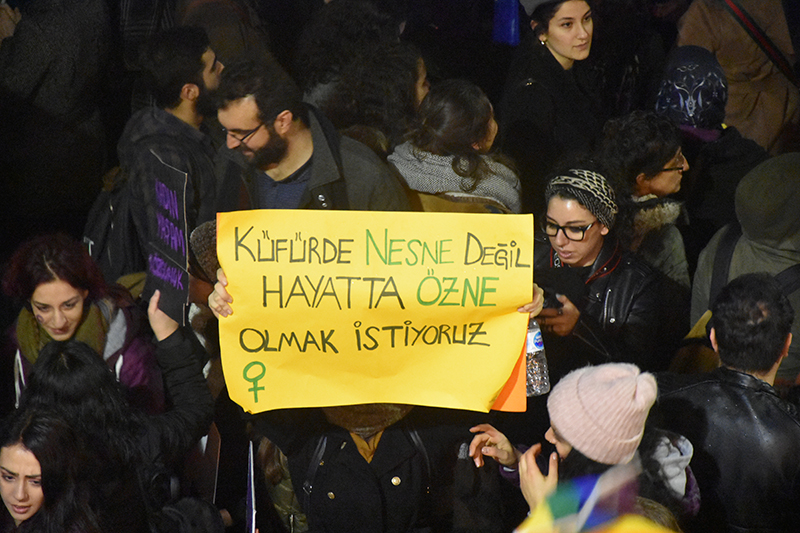 KÜFÜRDE NESNE DEĞİL
HAYATTA ÖZNE
OLMAK İSTİYORUZ